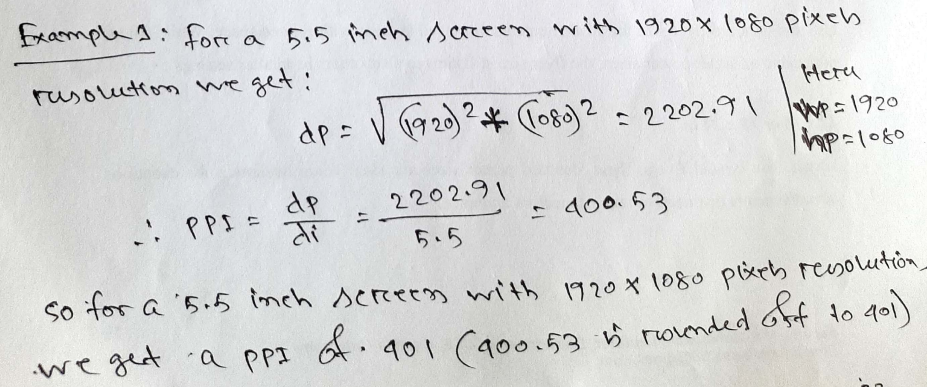 Example 1: for a 5.5 inch screen with 1920 x 1080 pixels
resolution we get:
dp = √(1920)² * (1080)² = 2202.91
Here
wp = 1920
hp = 1080
∴ PPI = dp/di = 2202.91/5.5 = 400.53
So for a 5.5 inch screen with 1920 x 1080 pixels resolution
we get a PPI of 401 (400.53 is rounded off to 401)